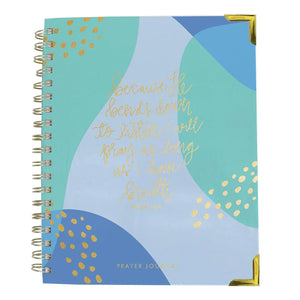 because He
bends down
to listen I will
pray as long
as I have
breath
PRAYER JOURNAL